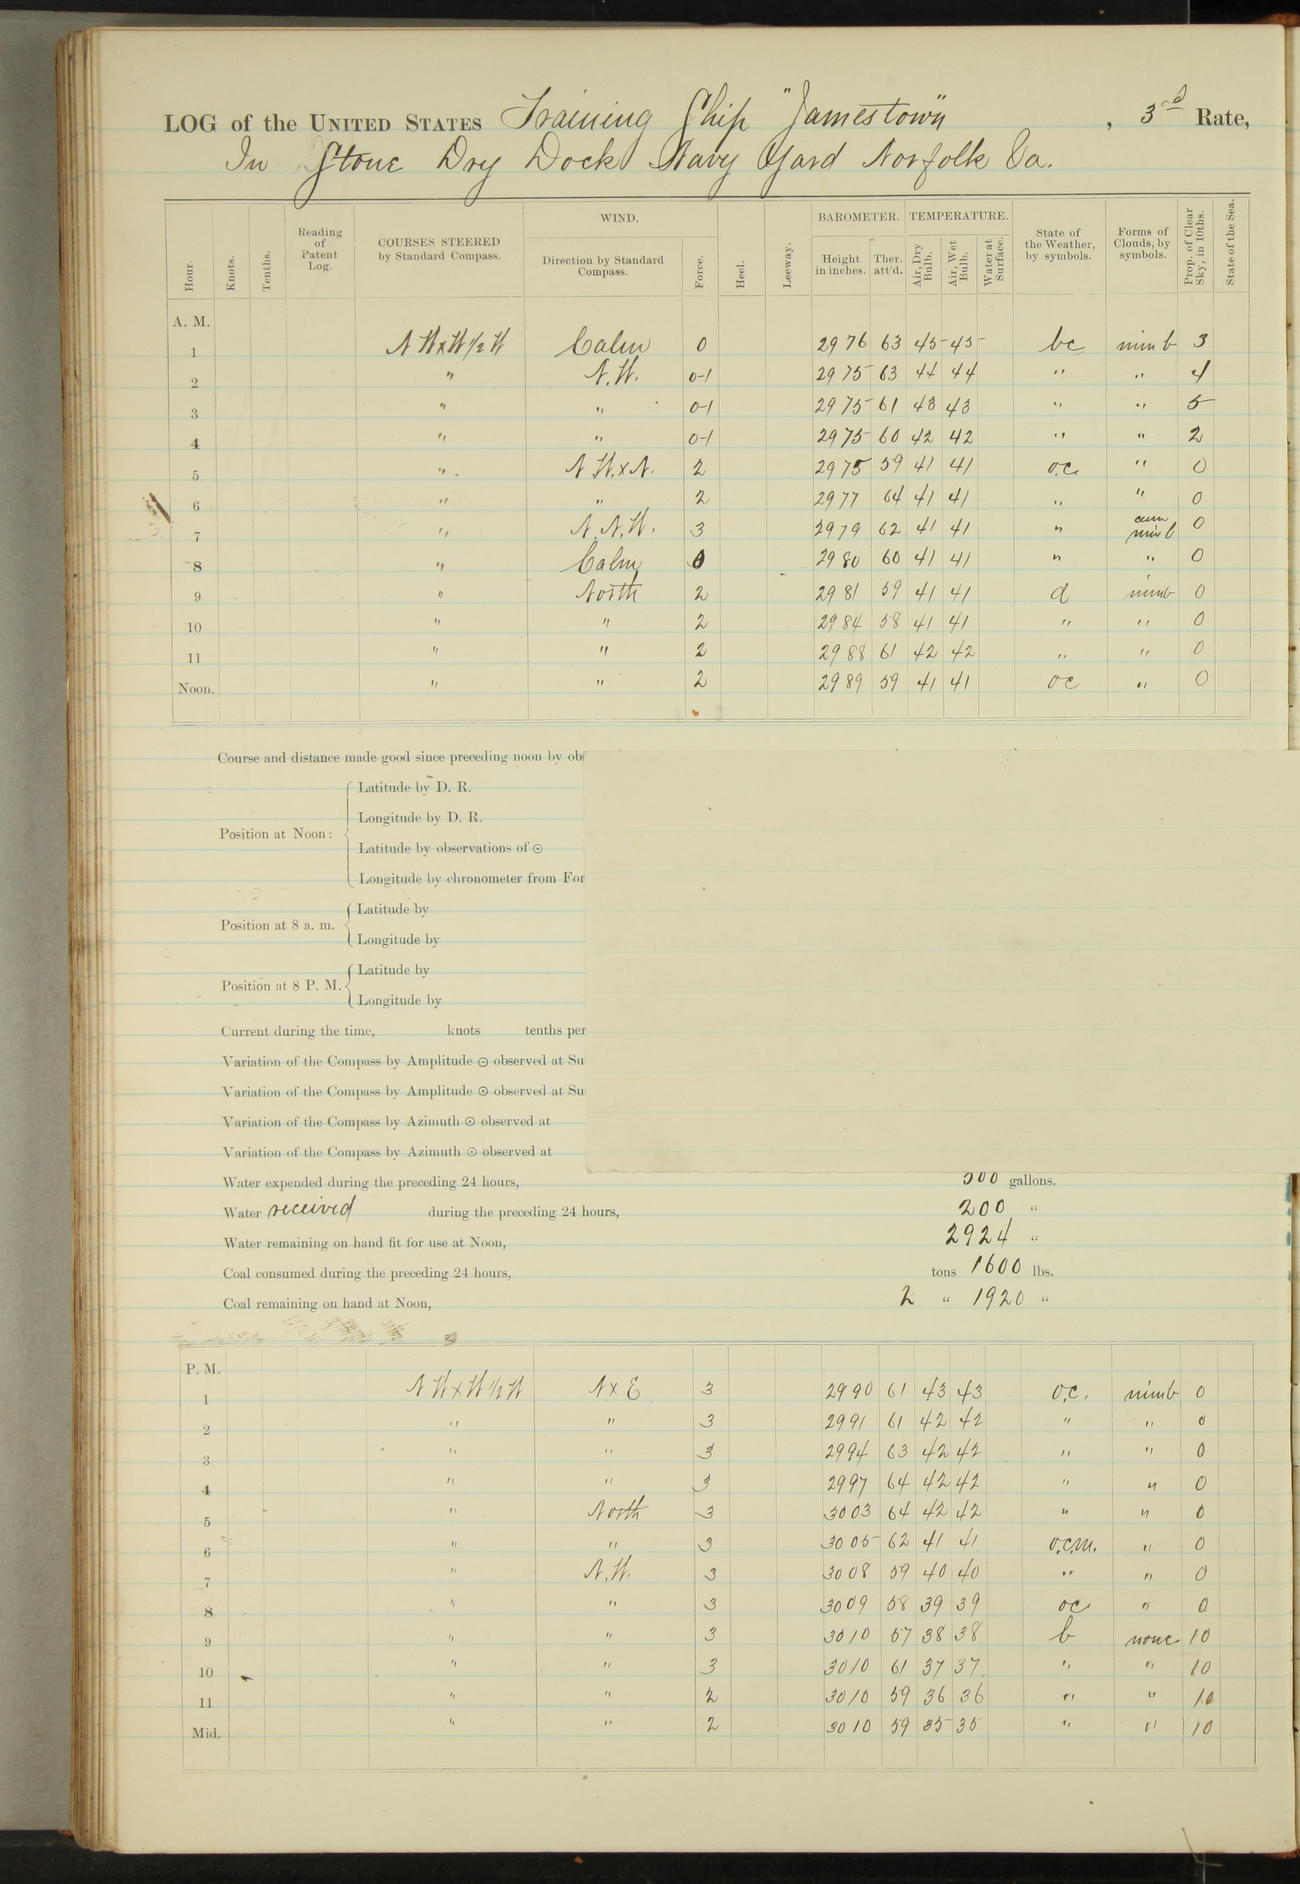 LOG of the UNITED STATES Training Ship "Jamestown", 3rd Rate,
In Stone Dry Dock Navy Yard Norfolk Va.
Hour. Knots. Tenths. Reading of Patent Log. COURSES STEERED by Standard Compass. WIND. Direction by Standard Compass. Force. Heel. Leeway. BAROMETER. Height in inches. Ther. att'd. TEMPERATURE. Air, Dry Bulb. Air, Wet Bulb. Water at Surface. State of the Weather, by symbols. Forms of Clouds, by symbols. Prop. of Clear Sky, in 10ths. State of the Sea.
A. M.
1 NWxW½W Calm 0 29 76 63 45 45 bc nimb 3
2 " N.W. 0-1 29 75 63 44 44 " " 4
3 " " 0-1 29 75 61 43 43 " " 5
4 " " 0-1 29 75 60 42 42 " " 2
5 " N.W.xN. 2 29 75 59 41 41 o.c. " 0
6 " " 2 29 77 64 41 41 " " 0
7 " N.N.W. 3 29 79 62 41 41 " cum nimb 0
8 " Calm 0 29 80 60 41 41 " " 0
9 " North 2 29 81 59 41 41 d nimb 0
10 " " 2 29 84 58 41 41 " " 0
11 " " 2 29 88 61 42 42 " " 0
Noon. " " 2 29 89 59 41 41 oc " 0
Course and distance made good since preceding noon by
Position at Noon:
Latitude by D. R.
Longitude by D. R.
Latitude by observations of ⊙
Longitude by chronometer from
Position at 8 a. m.
Latitude by
Longitude by
Position at 8 P. M.
Latitude by
Longitude by
Current during the time, knots tenths per
Variation of the Compass by Amplitude ⊙ observed at
Variation of the Compass by Amplitude ⊙ observed at
Variation of the Compass by Azimuth ⊙ observed at
Variation of the Compass by Azimuth ⊙ observed at
Water expended during the preceding 24 hours, gallons.
Water received during the preceding 24 hours, 200 "
Water remaining on hand fit for use at Noon, 2924 "
Coal consumed during the preceding 24 hours, tons 1600 lbs.
Coal remaining on hand at Noon, 2 " 1920 "
P. M.
1 NWxW½W NxE 3 29 90 61 43 43 o.c. nimb 0
2 " " 3 29 91 61 42 42 " " 0
3 " " 3 29 94 63 42 42 " " 0
4 " " 3 29 97 64 42 42 " " 0
5 " North 3 30 03 64 42 42 " " 0
6 " " 3 30 05 62 41 41 o.c.m. " 0
7 " N.W. 3 30 08 59 40 40 " " 0
8 " " 3 30 09 58 39 39 oc " 0
9 " " 3 30 10 57 38 38 b none 10
10 " " 3 30 10 61 37 37 " " 10
11 " " 2 30 10 59 36 36 " " 10
Mid. " " 2 30 10 59 35 35 " " 10